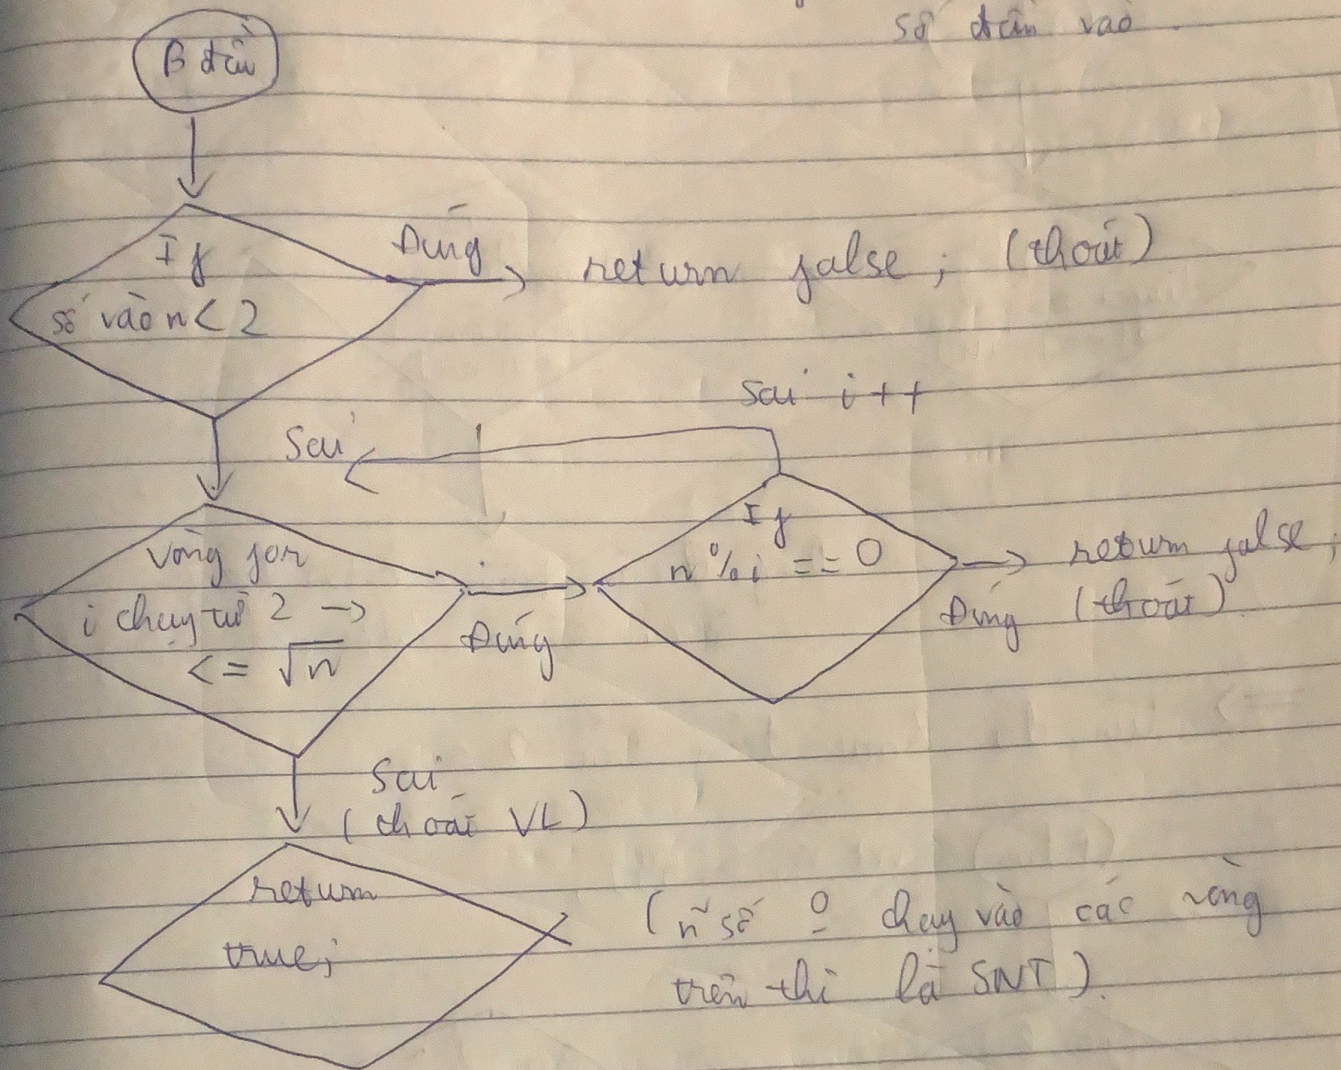 số đầu vào.
B đầu
If
số vào n < 2
Đúng
return false; (thoát)
Sai i++
Sai
vòng for
i chạy từ 2 →
<= √n
Đúng
If
n % i == 0
Đúng
return false;
(thoát)
Sai
(thoát VL)
return
true;
(n~ số o chạy vào các vòng
trên thì là SNT).